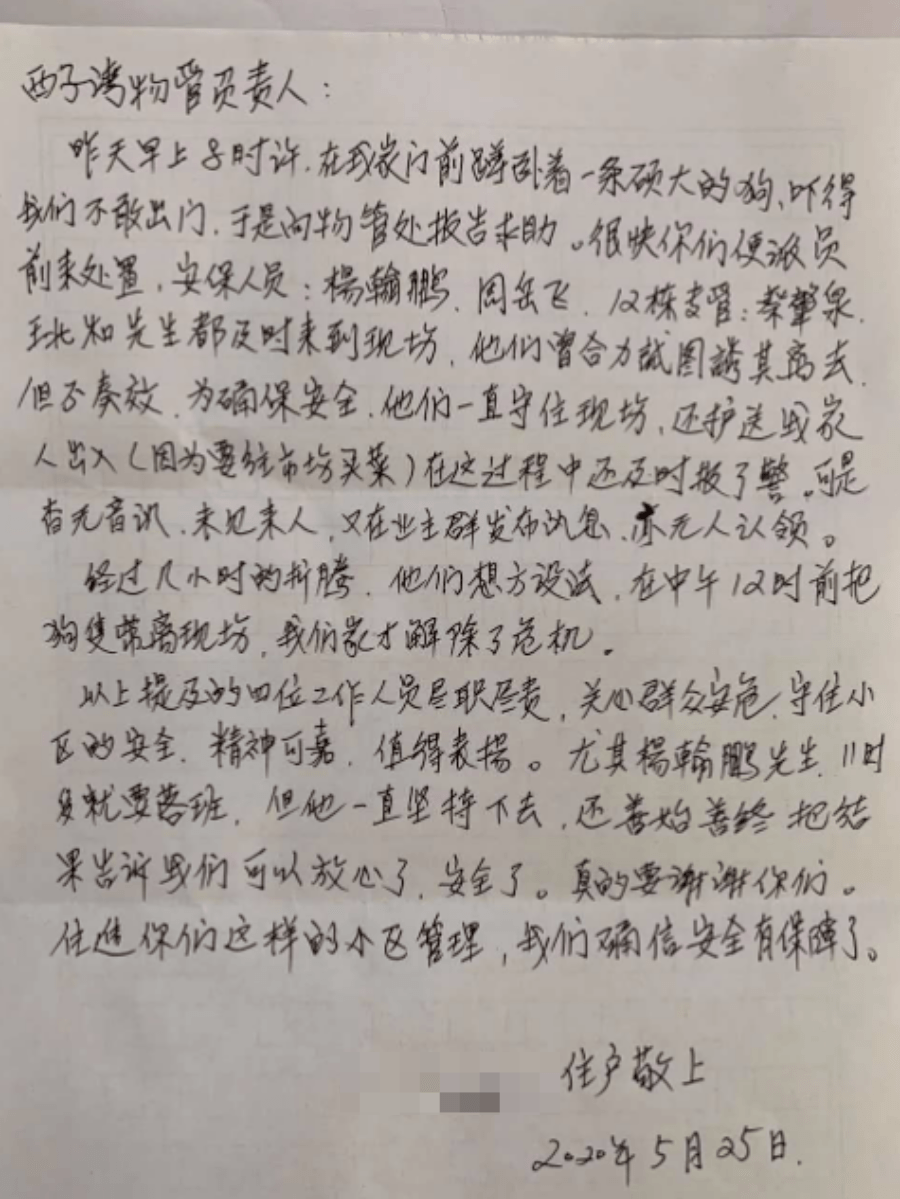 西子湾物管负责人：
昨天早上8时许，在我家门前蹲卧着一条硕大的狗，吓得
我们不敢出门，于是向物管处报告求助。很快你们便派员
前来处置，安保人员：楊翰鹏、周岳飞、12栋支管：蔡肇泉、
先生都及时来到现场，他们曾合力試图誘其离去，
但不奏效，为确保安全，他们一直守住现场，还护送我家
人出入（因为要往市场买菜）在这过程中还及时报了警，可是
杳无音讯，未见来人，又在业主群发布讯息，亦无人认领。
经过几小时的折腾，他们想方设法，在中午12时前把
狗隻带离现场，我们家才解除了危机。
以上提及的四位工作人员尽职尽责，关心群众安危，守住小
区的安全，精神可嘉，值得表揚。尤其楊翰鹏先生，11时
就要落班，但他一直坚持下去，还善始善终把结
果告诉我们可以放心了，安全了。真的要谢谢你们。
住进你们这样的小区管理，我们确信安全有保障了。
住户敬上
2020年5月25日.